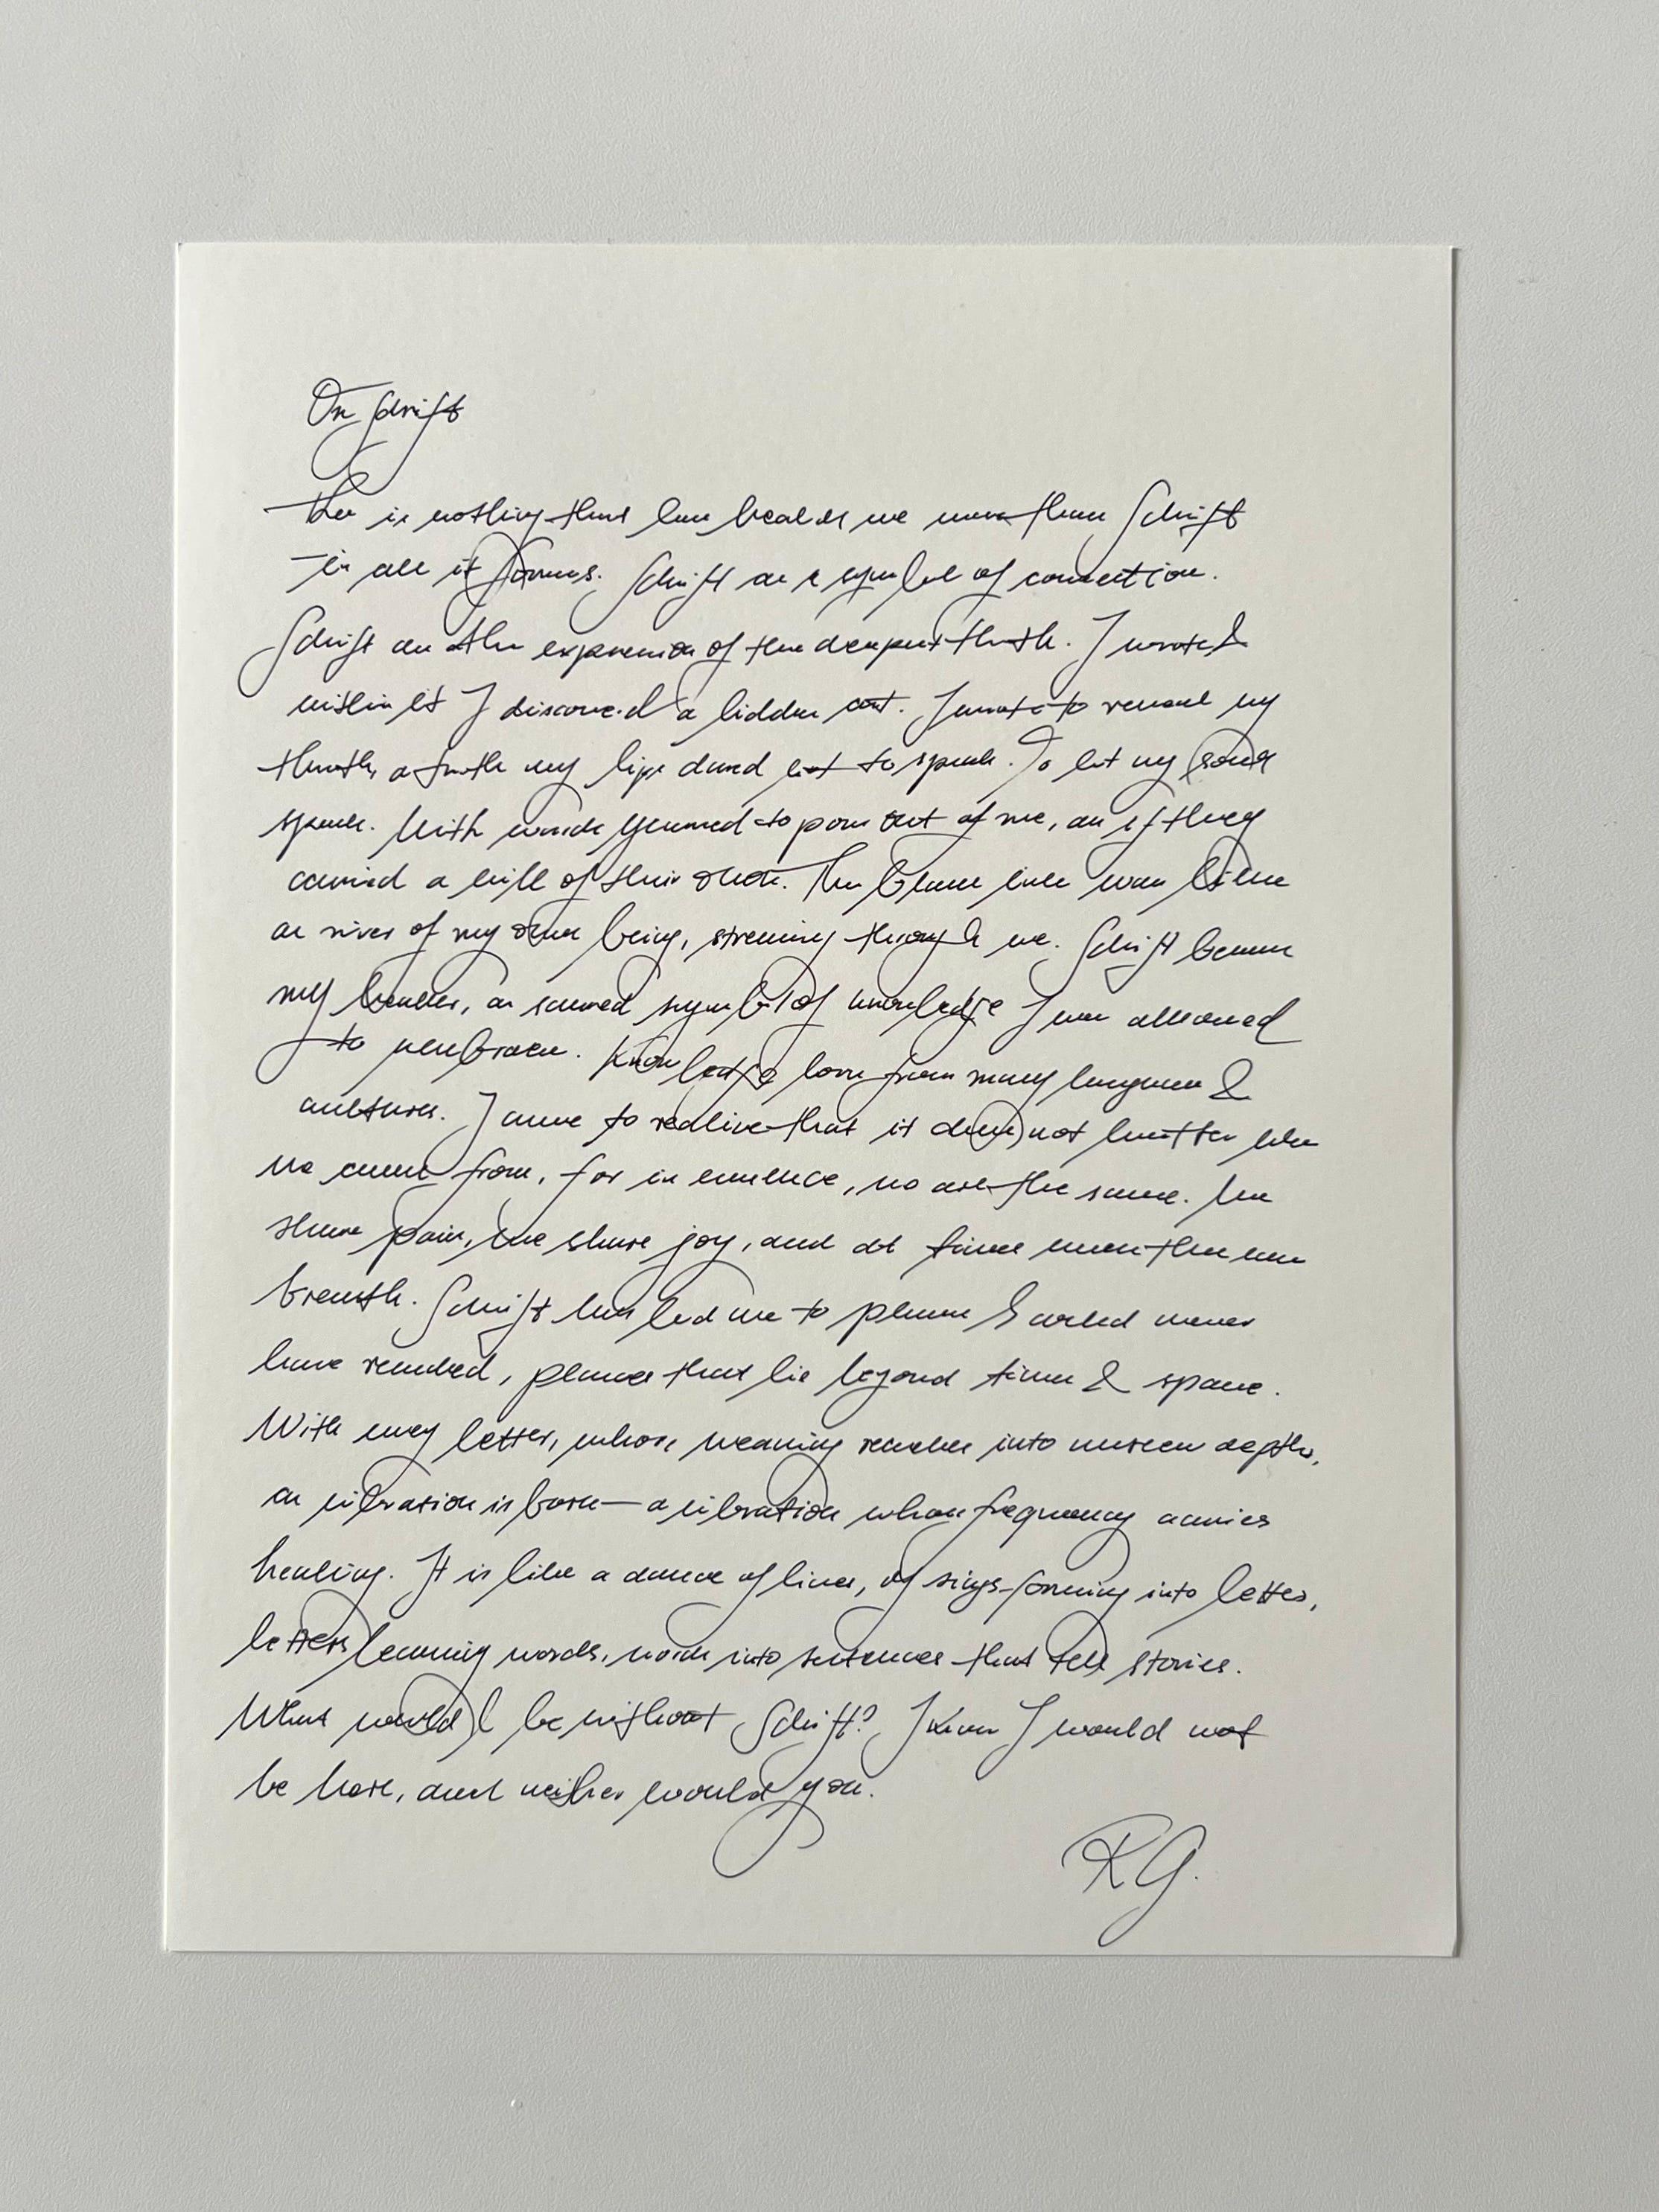 On Schrift
There is nothing that has healed me more than Schrift
in all it forms. Schrift as a symbol of connection.
Schrift as the expression of the deepest truth. I wrote &
within it I discovered a hidden art. I wrote to reveal my
truth, a truth my lips dared not to speak. To let my soul
speak. With words yearned to pour out of me, as if they
carried a will of their own. The black ink was like
a river of my own being, streaming through me. Schrift became
my healer, a sacred symbol of knowledge I was allowed
to embrace. Knowledge born from many languages &
cultures. I came to realize that it does not matter where
we came from, for in essence, we are the same. We
share pain, we share joy, and at times even the same
breath. Schrift has led me to places I would never
have reached, places that lie beyond time & space.
With every letter, whose meaning reaches into unseen depths,
a vibration is born — a vibration whose frequency carries
healing. It is like a dance of lines, of sings forming into letters,
letters becoming words, words into sentences that tell stories.
What would I be without Schrift? I know I would not
be here, and neither would you.
RG.